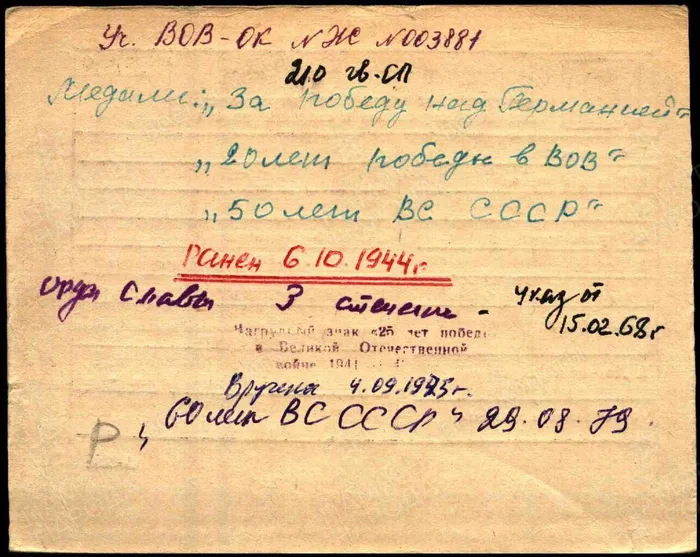 Уч. ВОВ-ОК N Ж N003881
210 гв. СП
Медали: „За победу над Германией"
„20 лет победы в ВОВ"
„50 лет ВС СССР"
Ранен 6.10.1944г
орден Славы 3 степени - указ от
15.02.68г
Нагрудный знак «25 лет победы
в Великой Отечественной
войне 1941
Вручена 4.09.1975г.
„60 лет ВС СССР" 29.08.79.
Р